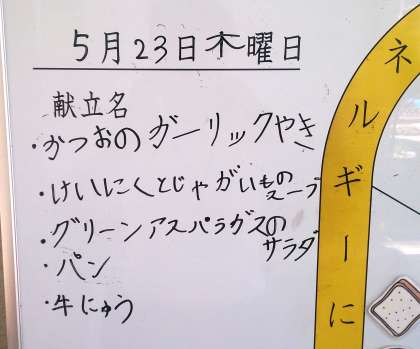 5月23日木曜日
献立名
・かつおのガーリックやき
・けいにくとじゃがいものスープ
・グリーンアスパラガスのサラダ
・パン
・牛にゅう
ネルギーに